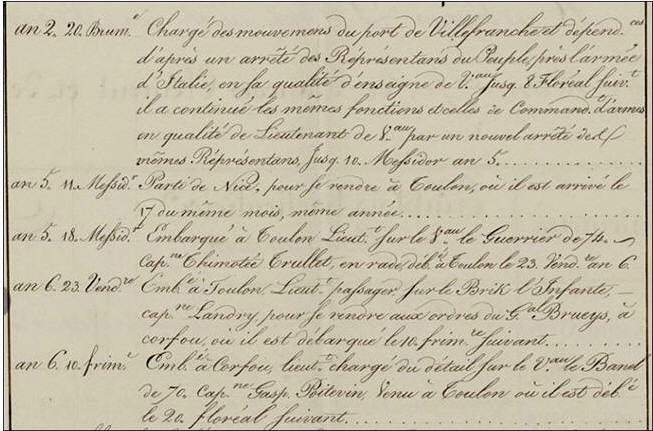 an 2. 20. Brum.e Chargé des mouvemens du port de Villefranche et dépend.ces
d'après un arrêté des Réprésentans du Peuple, près l'armée
d'Italie, en sa qualité d'enseigne de V.au Jusq. 8 Floréal suiv.t
il a continué les mêmes fonctions et celles de Command.t d'armes
en qualité de Lieutenant de V.au par un nouvel arrêté des
mêmes Réprésentans, Jusq. 10. Messidor an 5.
an 5. 11. Messid.r Parti de Nice, pour se rendre à Toulon, où il est arrivé le
17 du même mois, même année.
an 5. 18. Messid.r Embarqué à Toulon Lieut.t sur le V.au le Guerrier de 74.
Cap.ne Thimotée Trullet, en rade, déb.é à Toulon le 23. Vend.re an 6.
an 6. 23. Vend.re Emb.é à Toulon, Lieut.t passager, sur le Brik l'Infante,
cap.ne Landry, pour se rendre aux ordres du G.al Brueys, à
corfou, où il est débarqué le 10. frim.re suivant.
an 6. 10. frim.e Emb.é à Corfou, lieut.t chargé du détail sur le V.au le Banel
de 70. Cap.ne Gasp. Poitevin, Venu à Toulon où il est déb.é
le 20. floréal suivant.